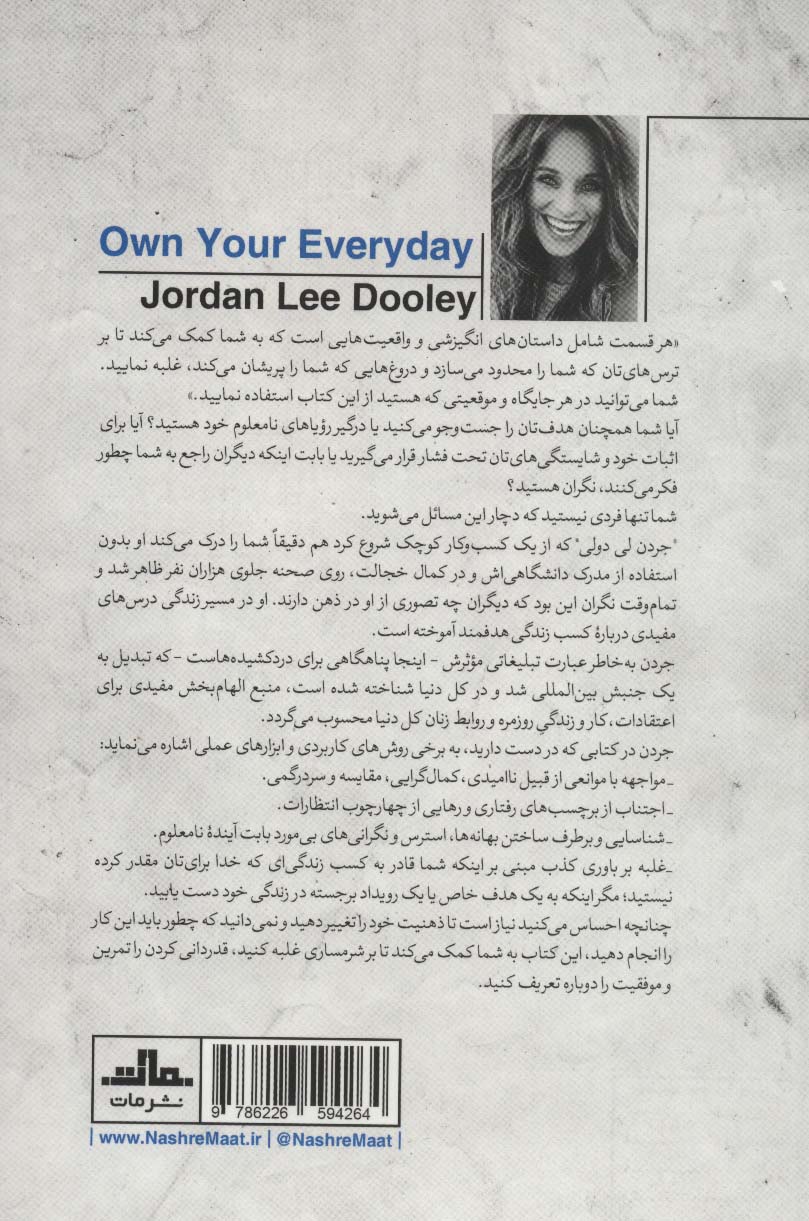 Own Your Everyday
Jordan Lee Dooley
«هر قسمت شامل داستان‌های انگیزشی و واقعیت‌هایی است که به شما کمک می‌کند تا بر
ترس‌های‌تان که شما را محدود می‌سازد و دروغ‌هایی که شما را پریشان می‌کند، غلبه نمایید.
شما می‌توانید در هر جایگاه و موقعیتی که هستید از این کتاب استفاده نمایید.»
آیا شما همچنان هدف‌تان را جست‌وجو می‌کنید یا درگیر رؤیاهای نامعلوم خود هستید؟ آیا برای
اثبات خود و شایستگی‌های‌تان تحت فشار قرار می‌گیرید یا بابت اینکه دیگران راجع به شما چطور
فکر می‌کنند، نگران هستید؟
شما تنها فردی نیستید که دچار این مسائل می‌شوید.
"جردن لی دولی" که از یک کسب‌وکار کوچک شروع کرد هم دقیقاً شما را درک می‌کند او بدون
استفاده از مدرک دانشگاهی‌اش و در کمال خجالت، روی صحنه جلوی هزاران نفر ظاهر شد و
تمام‌وقت نگران این بود که دیگران چه تصوری از او در ذهن دارند. او در مسیر زندگی درس‌های
مفیدی دربارهٔ کسب زندگی هدفمند آموخته است.
جردن به‌خاطر عبارت تبلیغاتی مؤثرش - اینجا پناهگاهی برای دردکشیده‌هاست - که تبدیل به
یک جنبش بین‌المللی شد و در کل دنیا شناخته شده است، منبع الهام‌بخش مفیدی برای
اعتقادات، کار و زندگیِ روزمره و روابط زنان کل دنیا محسوب می‌گردد.
جردن در کتابی که در دست دارید، به برخی روش‌های کاربردی و ابزارهای عملی اشاره می‌نماید:
ـ مواجهه با موانعی از قبیل ناامیدی، کمال‌گرایی، مقایسه و سردرگمی.
ـ اجتناب از برچسب‌های رفتاری و رهایی از چهارچوب انتظارات.
ـ شناسایی و برطرف ساختن بهانه‌ها، استرس و نگرانی‌های بی‌مورد بابت آیندهٔ نامعلوم.
ـ غلبه بر باوری کذب مبنی بر اینکه شما قادر به کسب زندگی‌ای که خدا برای‌تان مقدر کرده
نیستید؛ مگر اینکه به یک هدف خاص یا یک رویداد برجسته در زندگی خود دست یابید.
چنانچه احساس می‌کنید نیاز است تا ذهنیت خود را تغییر دهید و نمی‌دانید که چطور باید این کار
را انجام دهید، این کتاب به شما کمک می‌کند تا بر شرمساری غلبه کنید، قدردانی کردن را تمرین
و موفقیت را دوباره تعریف کنید.
مات
نشر مات
9 786226 594264
| www.NashreMaat.ir | @NashreMaat |